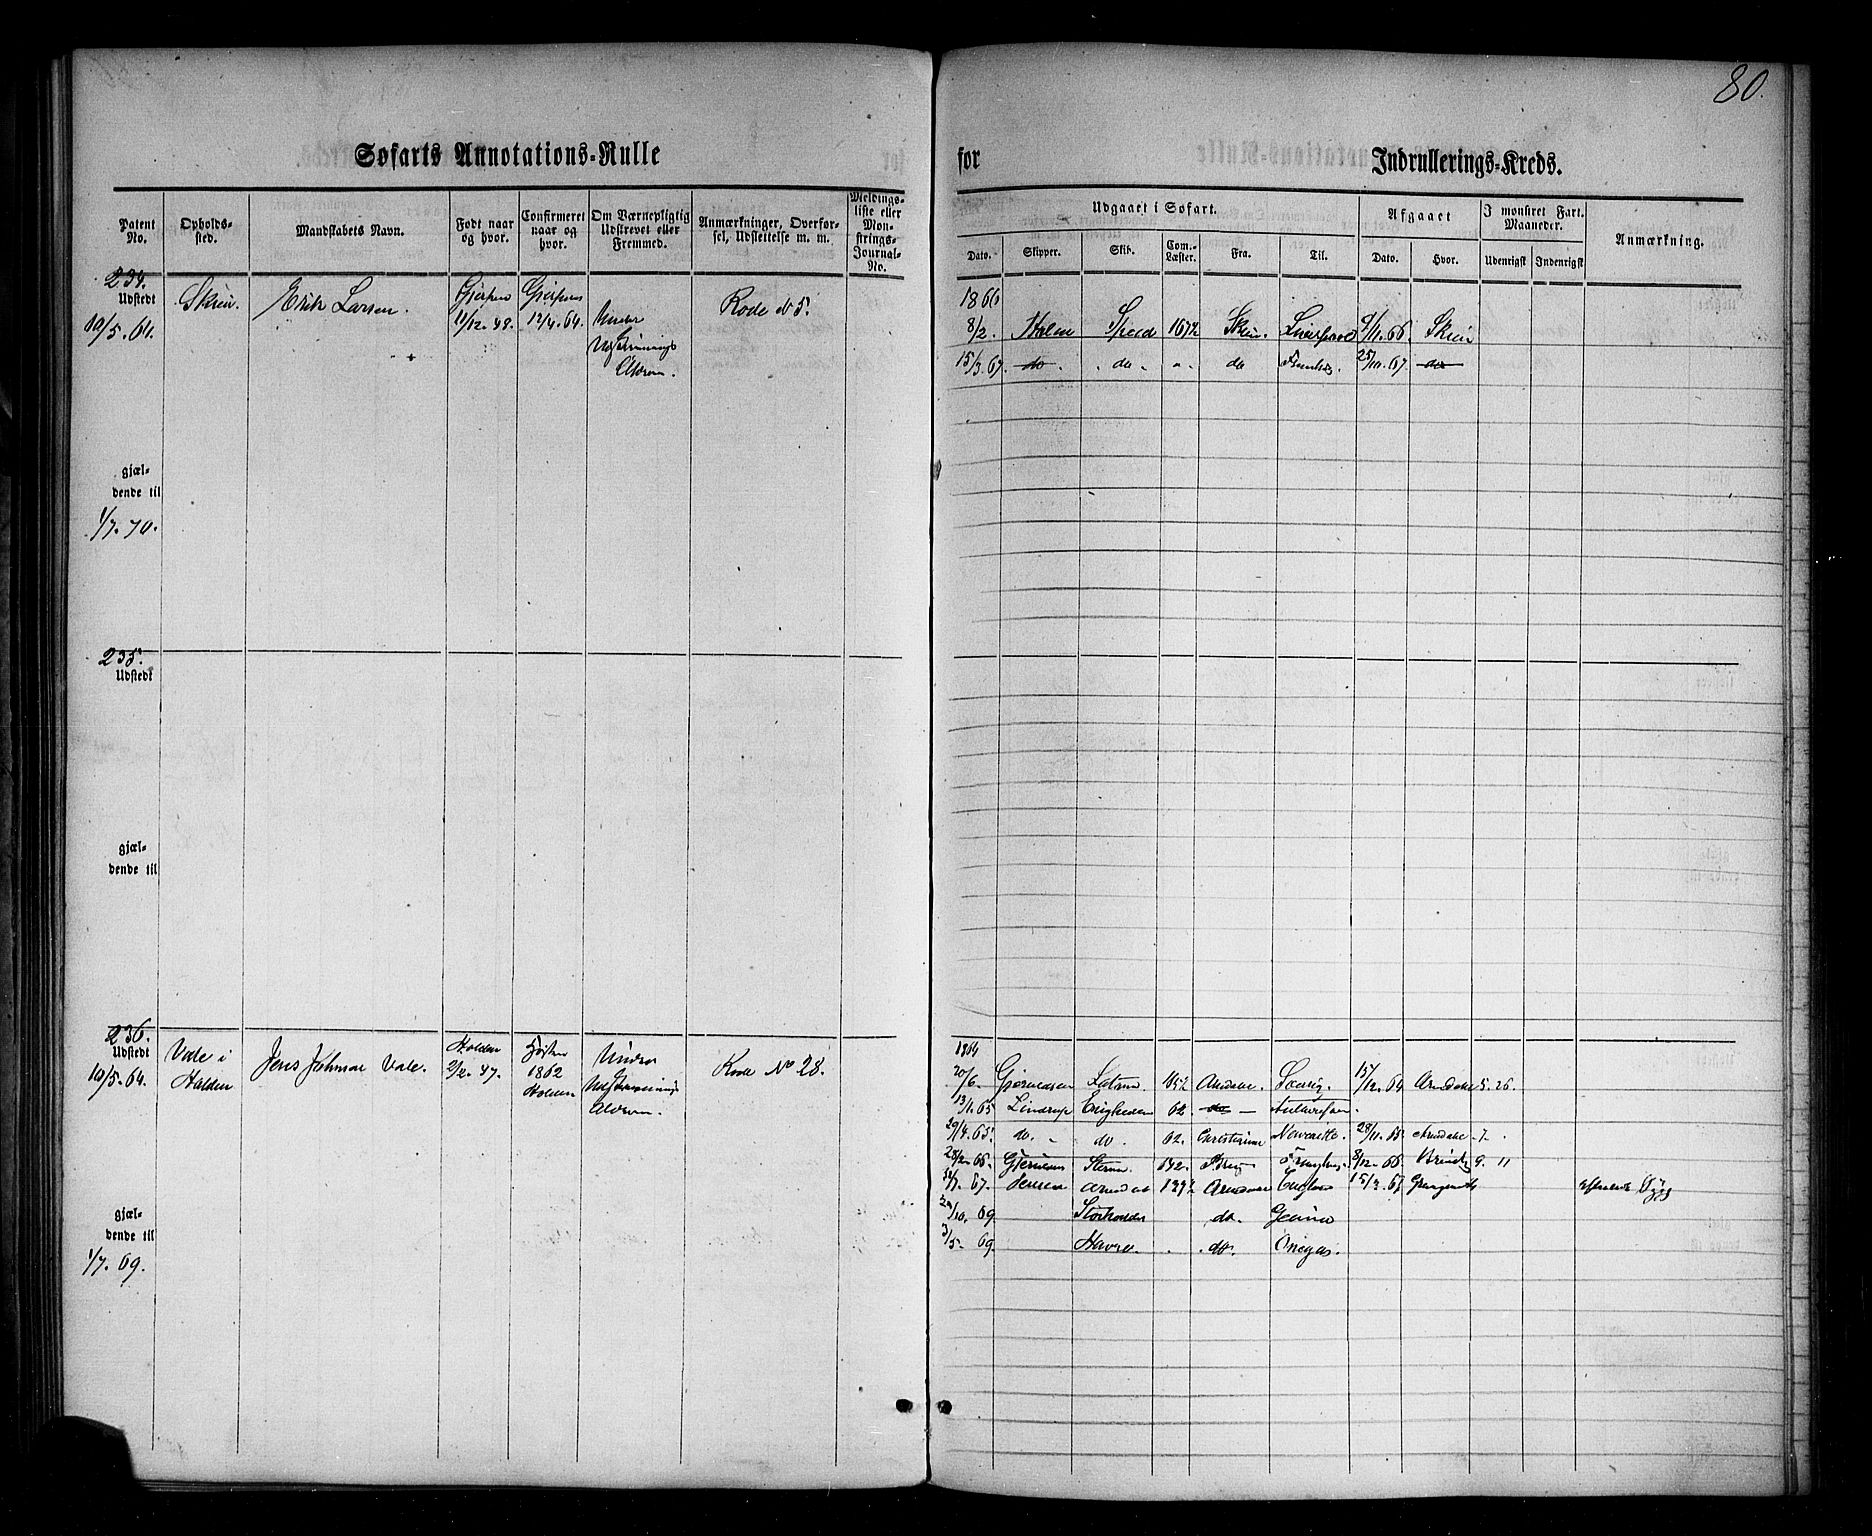 80.
Søfarts Annotations-Rulle
for Indrullerings-Kreds.
Patent No.
Opholds-sted.
Mandskabets Navn.
Født naar og hvor.
Confirmeret naar og hvor.
Om Værnepligtig Udskrevet eller Fremmed.
Anmærkninger, Overførsel, Udslettelse m. m.
Meldings-liste eller Mønstrings-Journal-No.
Udgaaet i Søfart.
Afgaaet
I mønstret Fart. Maaneder.
Anmærkning.
Dato. Skipper. Skib. Com.-Læster. Fra. Til. Dato. Hvor. Udenrigst Indenrigst
234.
Udstedt
10/5. 64.
Skien.
Erik Larsen.
Gjerpen
11/12. 48.
Gjerpen
12/4. 64.
Under
Udskrivnings
Alderen.
Rode No 5.
gjæl-
dende til
1/7. 70.
1866
8/2. Holm Speed 167½ Skien. Liverpool 9/11. 66. Skien
15/3. 67. do. do. " do 25/10. 67. do
235.
Udstedt
gjæl-
dende til
236.
Udstedt
10/5. 64.
Vale i
Holden
Jens Johnsen Vale.
Holden
2/2. 47.
Høsten
1862
Holden
Under
Udskrivnings
Alderen.
Rode No 28.
gjæl-
dende til
1/7. 69.
1864
20/6. 15/12. 64 Arendal 5. 26.
13/1. 65 Lindrup Enigheden 62. do
29/4. 65. do. do. 62. 28/11. 65 Arendal 7.
28/2. 66. 8/12. 66 9. 11
67. Jensen Arendal Arendal 15/3. 67
/10. 69. do.
3/5. 69. do.